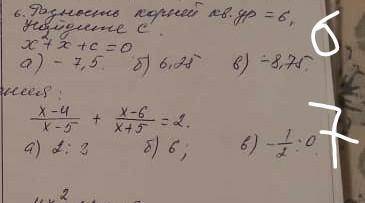 6. Разность корней кв. ур = 6,
Найдите с.
x² + x + c = 0
а) - 7,5. б) 6,25 в) -8,75.
6
:
x-4/x-5 + x-6/x+5 = 2.
а) 2; 3 б) 6; в) -1/2; 0.
7